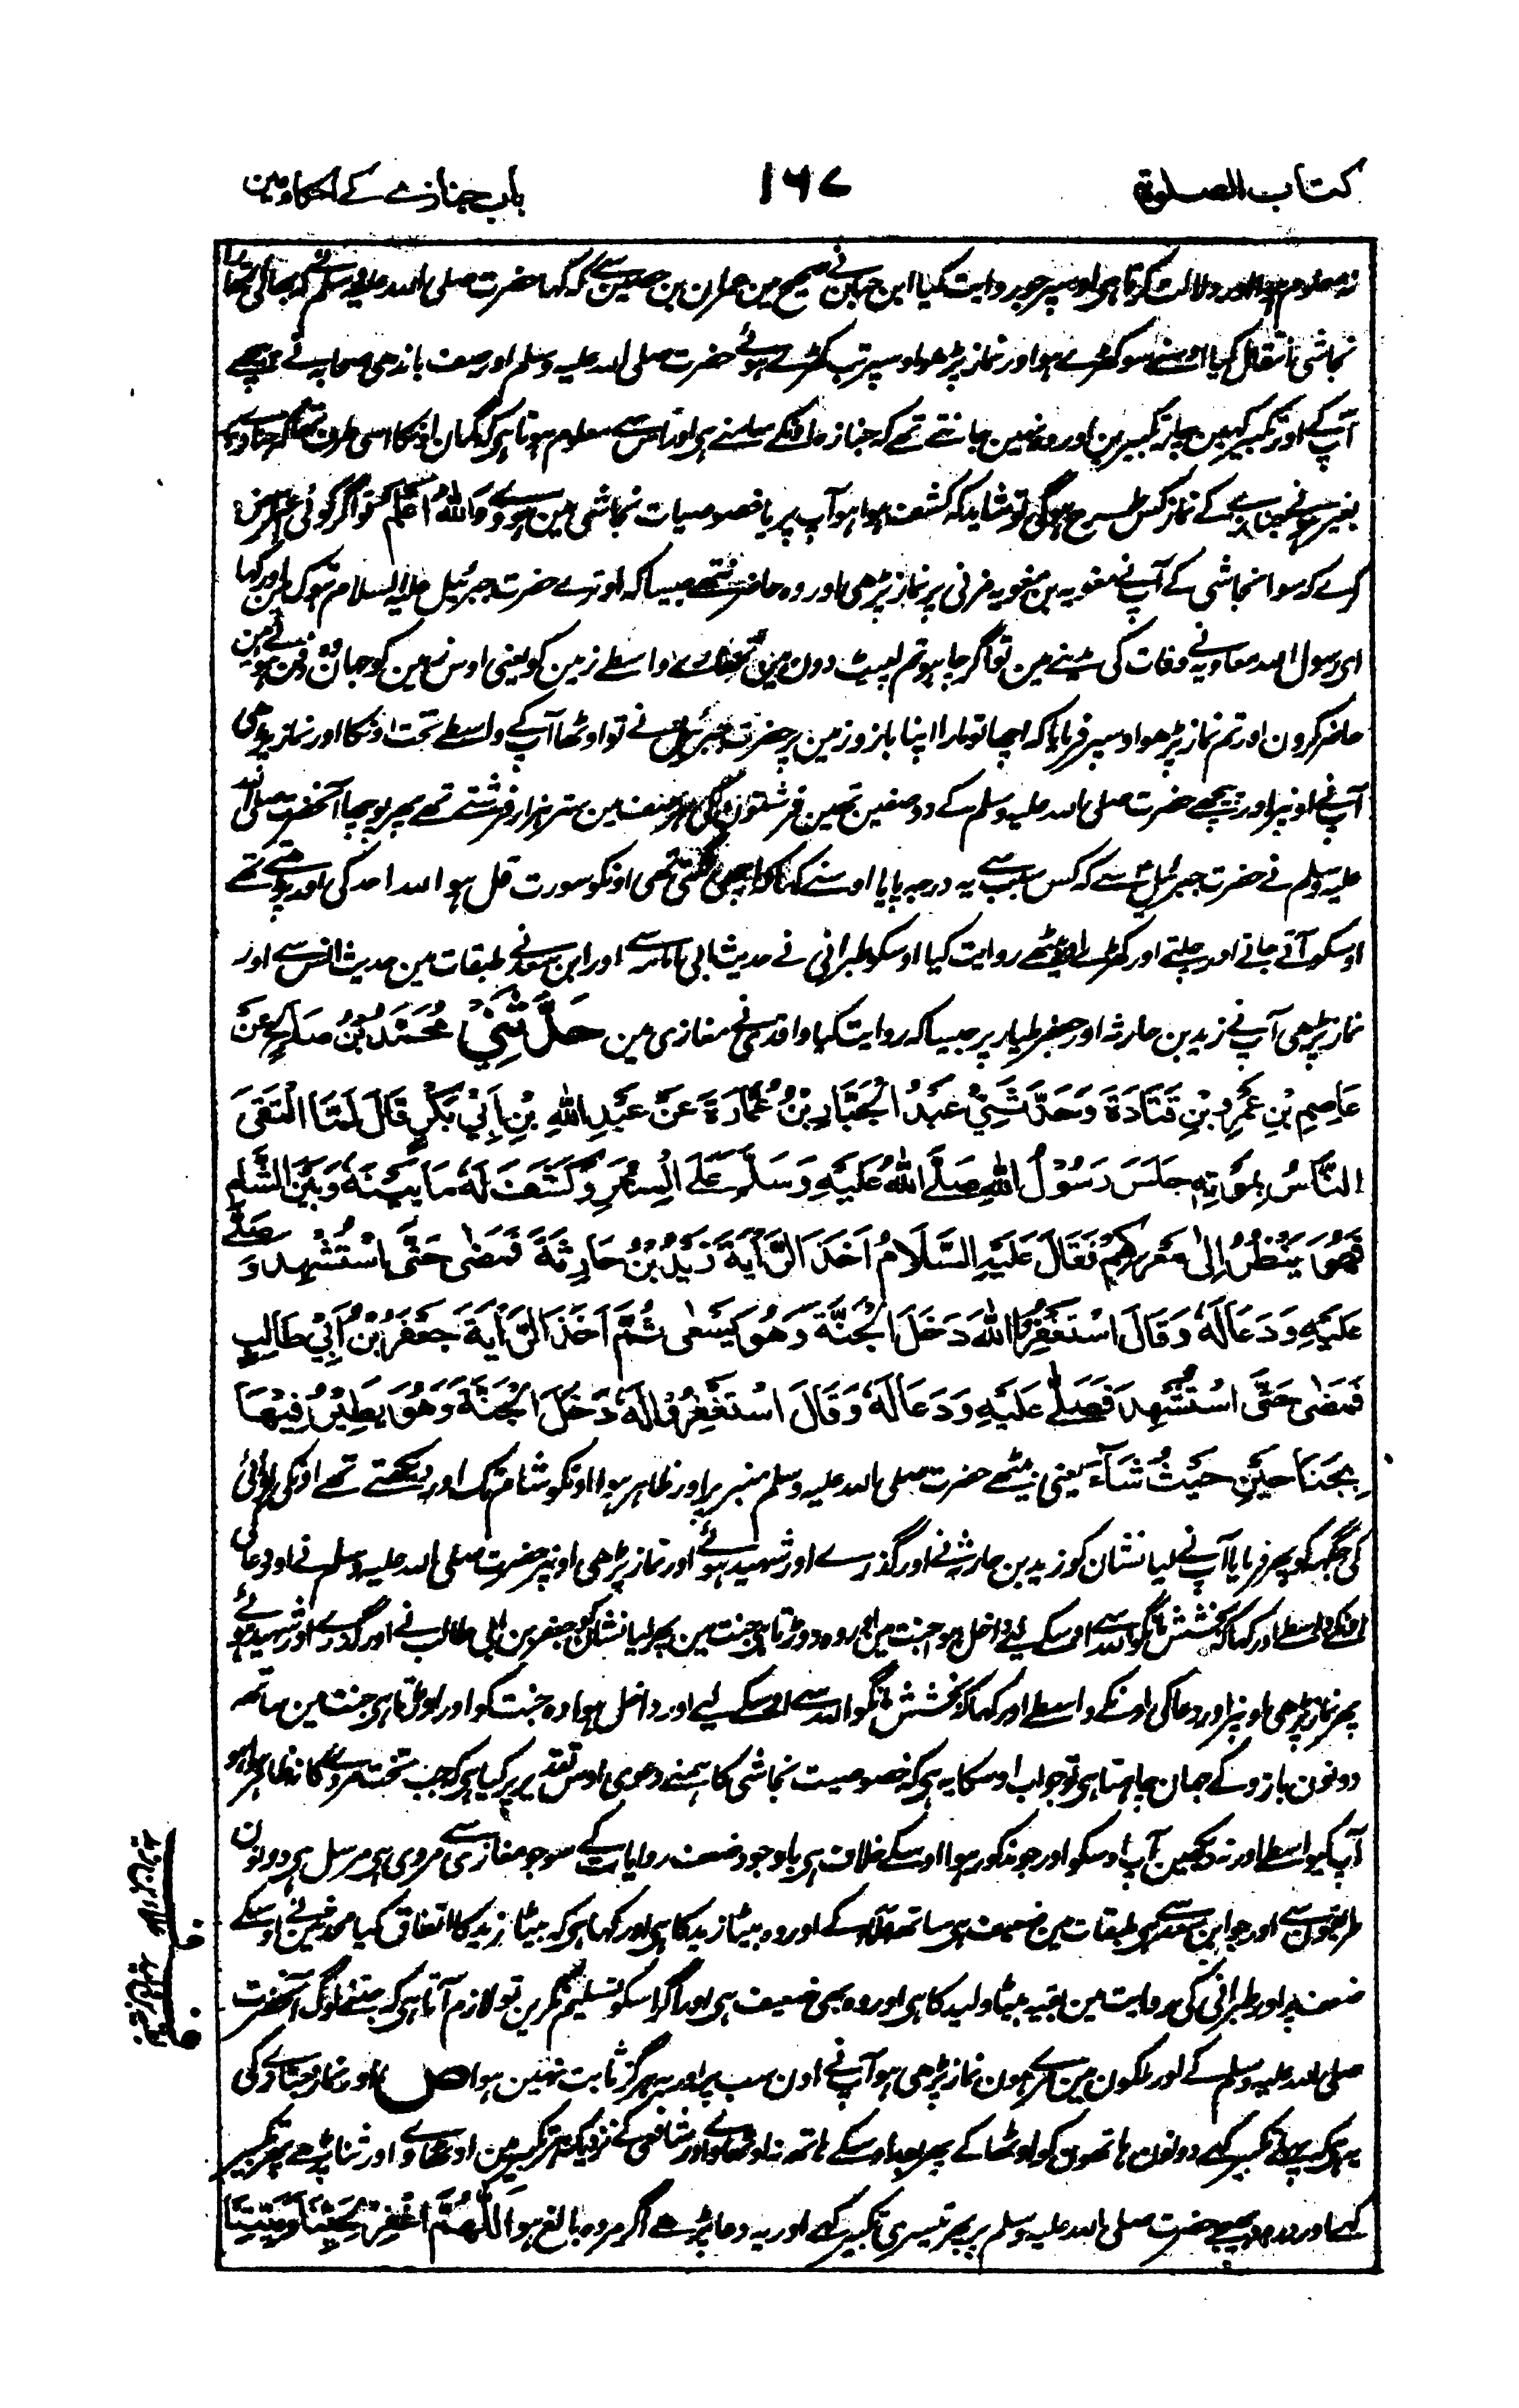 کتاب الصلوۃ ۱۶۷ باب جنازے کے احکام مین
نہ معلوم ہوا اور دلالت کرتا ہی اوسپر جو روایت کیا ابن حبان نے صحیح مین عمران بن حصین سے کہ کہا حضرت صلی اللہ علیہ وسلم نے کہ بھائی تمھارا
نجاشی انتقال کیا اوسنے سو کھڑے ہو اور نماز پڑھو اوسپر تب کھڑے ہوئے حضرت صلی اللہ علیہ وسلم اور صف باندھی صحابہ نے پیچھے
آپ کے اور تکبیر کہین چار تکبیرین اور وہ نہین جانتے تھے کہ جنازہ اونکے سامنے ہی اور اس سے معلوم ہوتا ہی کہ گمان اونکا اسی طرف تھا کہ جنازہ
بغیر ہونے جنازے کے نماز کس طرح ہوگی تو شاید کہ کشف ہوا ہو آپ پر یا خصوصیات نجاشی مین ہووے وَاللّٰہُ اَعْلَمُ سو اگر کوئی اعتراض
کرے کہ سوا نجاشی کے آپ نے معویہ بن معویہ مزنی پر نماز پڑھی اور وہ حاضر نتھے جیسا کہ اوترے حضرت جبرئیل علیہ السلام تبوک مین اور کہا
ای رسول اللہ معاویہ نے وفات کی مدینے مین تو اگر چاہو تم لپیٹ دون مین تمھارے واسطے زمین کو یعنی اوس زمین کو جہان وہ دفن ہوئے ہین
حاضر کرون اور تم نماز پڑھو اوسپر فرمایا کہ اچھا تو مارا اپنا بازو زمین پر حضرت جبرئیل نے تو اوٹھا آپ کے واسطے تخت اونکا اور نماز پڑھی
آپ نے اونپر اور پیچھے حضرت صلی اللہ علیہ وسلم کے دو صفین تھین فرشتون کی ہر صف مین ستر ہزار فرشتے تھے پھر پوچھا آنحضرت صلی اللہ
علیہ وسلم نے حضرت جبرئیل سے کہ کس سبب سے یہ درجہ پایا اوسنے کہا کہ اچھی لگتی تھی اونکو سورت قل ہو اللہ احد کی اور پڑھتے تھے
اوسکو آتے جاتے اور چلتے اور کھڑے بیٹھے روایت کیا اوسکو طبرانی نے حدیث ابی امامہ سے اور ابن سعد نے طبقات مین حدیث انس سے اور
نماز پڑھی آپ نے زید بن حارثہ اور جعفر طیار پر جیسا کہ روایت کیا واقدی نے مغازی مین حَدَّثَنِیْ مُحَمَّدُ بْنُ صَالِحٍ عَنْ
عَاصِمِ بْنِ عُمَرِو بْنِ قَتَادَةَ وَحَدَّثَنِیْ عَبْدُ الْجَبَّارِ بْنُ عُمَارَةَ عَنْ عَبْدِ اللّٰهِ بْنِ اَبِیْ بَکْرٍ قَالَ لَمَّا الْتَقَی
النَّاسُ بِمُوْتَہِ جَلَسَ رَسُوْلُ اللّٰهِ صَلَّے اللّٰهُ عَلَیْهِ وَسَلَّمَ عَلَی الْمِنْبَرِ وَکُشِفَ لَهٗ مَا بَیْنَهٗ وَبَیْنَ الشَّامِ
فَهُوَ یَنْظُرُ اِلٰی مَعْرَکِهِمْ فَقَالَ عَلَیْهِ السَّلَامُ اَخَذَ الرَّایَةَ زَیْدُ بْنُ حَارِثَةَ فَمَضٰی حَتّٰی اسْتُشْهِدَ وَصَلّٰے
عَلَیْهِ وَدَعَا لَهٗ وَقَالَ اسْتَغْفِرُوا اللّٰهَ دَخَلَ الْجَنَّةَ وَهُوَ یَسْعٰی ثُمَّ اَخَذَ الرَّایَةَ جَعْفَرُ بْنُ اَبِیْ طَالِبٍ
فَمَضٰی حَتّٰی اسْتُشْهِدَ فَصَلّٰے عَلَیْهِ وَدَعَا لَهٗ وَقَالَ اسْتَغْفِرُوْا لَهٗ دَخَلَ الْجَنَّةَ وَهُوَ یَطِیْرُ فِیْهَا
بِجَنَاحَیْنِ حَیْثُ شَآءَ یعنی بیٹھے حضرت صلی اللہ علیہ وسلم منبر پر اور ظاہر ہوا اونکو شام تک اور دیکھتے تھے اونکی لڑائی
کی جگہ کو پھر فرمایا آپ نے لیا نشان کو زید بن حارثہ نے اور گذرے اور شہید ہوئے اور نماز پڑھی اونپر حضرت صلی اللہ علیہ وسلم نے اور دعا کی
اونکے واسطے اور کہا کہ بخشش مانگو اللہ سے اوسکے لیے داخل ہوا جنت مین اور وہ دوڑتا ہی جنت مین پھر لیا نشان کو جعفر بن ابی طالب نے اور گذرے اور شہید ہوئے
پھر نماز پڑھی اونپر اور دعا کی اونکے واسطے اور کہا کہ بخشش مانگو اللہ سے اوسکے لیے اور داخل ہوا وہ جنت کو اور اوڑتا ہی جنت مین ساتھ
دونون بازو کے جہان چاہتا ہی تو جواب اوسکا یہ ہی کہ خصوصیت نجاشی کا ہمنے دعوی اوس تقدیر پر کیا ہی کہ جب تخت مردے کا نہ ظاہر ہوا ہو
آپ کیواسطے اور نہ دیکھین آپ اوسکو اور جو مذکور ہوا اوسکے خلاف ہی باوجود ضعف روایات کے سو جو مغازی سے مروی ہی مرسل ہی دونون
طریقون سے اور جو ابن سعد سے ہی طبقات مین ضعیف ہی ساتھ علا کے اور وہ بیٹا زید کا ہی اور کہا ہی کہ بیٹا زید کا اتفاق کیا محدثین نے اوسکے
ضعف پر اور طبرانی کی روایت مین بقیہ بیٹا ولید کا ہی اور وہ بھی ضعیف ہی اور اگر اسکو تسلیم کرین تو لازم آتا ہی کہ جتنے لوگ آنحضرت
صلی اللہ علیہ وسلم کے اور ملکون مین مرے ہون نماز پڑھی ہو آپ نے اون سب پر اور یہ ہرگز ثابت نہین ہوا ص اور نماز جنازے کی
یہ ہی کہ پہلے تکبیر کہے دونون ہاتھون کو اوٹھا کے پھر بعد اوسکے ہاتھ نہ اوٹھاوے اور شافعی کے نزدیک ہر تکبیر مین اوٹھاوے اور ثنا پڑھے پھر تکبیر
کہے اور درود بھیجے حضرت صلی اللہ علیہ وسلم پر پھر تیسری تکبیر کہے اور یہ دعا پڑھے اگر مردہ بالغ ہو اَللّٰهُمَّ اغْفِرْ لِحَیِّنَا وَمَیِّتِنَا